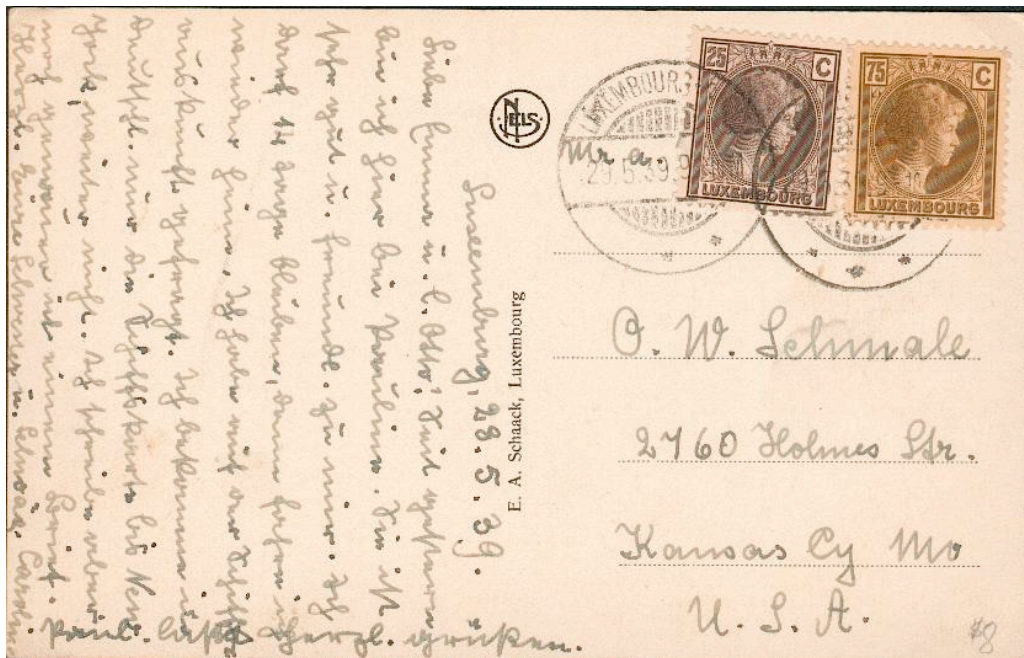 Luxemburg, 28.5.39.
Liebe Emma u. l. Otto! Seit gestern
bin ich hier bei Pauline. Sie ist
sehr gut u. freundl. zu mir. Ich
darf 14 Tage bleiben, dann fahre ich
wieder heim. Ich habe auf der Schiffs
auskunft gefragt. Ich bekomme v.
Deutschl. nur die Schiffskarte bis New
York, weiter nicht. Ich schreibe aber
noch genauer in einem Brief.
Herzl. Eure Schwester u. Schwäg. Carolin
Paul. läßt herzl. grüßen.
NELS
E. A. Schaack, Luxembourg
LUXEMBOURG
29.5.39.9
25 C
LUXEMBOURG
75 C
LUXEMBOURG
Mr a.
O. W. Schmale
2760 Holmes Str.
Kansas Cy Mo
U. S. A.